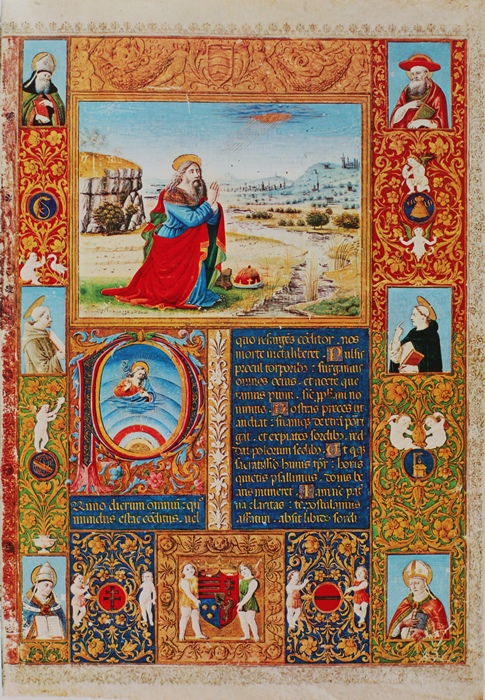 PRimo dierum omniū. quo
mundus extat cōditus. vel
quo resurgēs cōditor. nos
morte victa liberet. Pulsis
procul torporib; : surgamus
omnes ocius. et nocte que
ramus pium. sic pphām no
uimus. Nostras preces ut
audiat : suamq; dextrā porri
gat. et expiatos sordib; red
dat polorum sedib;. Ut qq;
sacratissīo huius tpr : horis
quietis psallimus. donis be
atis muneret. Iam nūc pat̄
na claritas : te postulamus
affatim. absit libido sordi